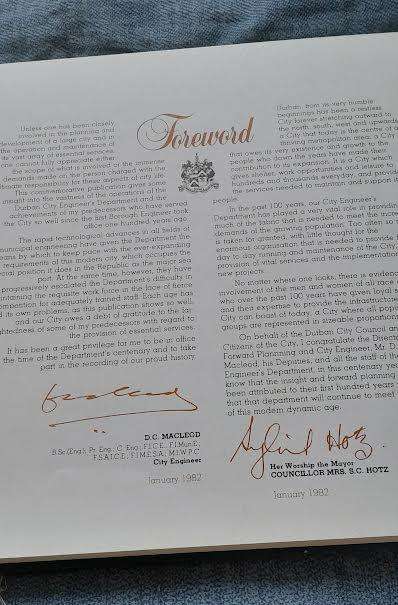 Foreword
Unless one has been closely
involved in the planning and
development of a large city and in
the operation and maintenance of
its vast array of essential services
one cannot fully appreciate either
the scope of what is involved or the immense
demands made on the person charged with the
ultimate responsibility for these aspects of city life.
This commemorative publication gives some
insight into the vastness of the operations of the
Durban City Engineer's Department and the
achievements of my predecessors who have served
the City so well since the first Borough Engineer took
office one hundred years ago.
The rapid technological advances in all fields of
municipal engineering have given the Department the
means by which to keep pace with the ever-expanding
requirements of this modern city, which occupies the
special position it does in the Republic as the major sea
port. At the same time, however, they have
progressively escalated the Department's difficulty in
obtaining the requisite work force in the face of fierce
competition for adequately trained staff. Each age has
had its own problems, as this publication shows so well,
and our City owes a debt of gratitude to the far-
sightedness of some of my predecessors with regard to
the provision of essential services.
It has been a great privilege for me to be in office
at the time of the Department's centenary and to take
part in the recording of our proud history.
D.C. MACLEOD
B.Sc.(Eng), Pr. Eng., C. Eng., F.I.C.E., F.I.Mun.E.,
F.S.A.I.C.E., F.I.M.E.S.A., M.I.W.P.C.
City Engineer
January 1982
Durban, from its very humble
beginnings has been a restless
City forever stretching outward to
the north, south, west and upwards
a City that today is the centre of a
thriving metropolitan area; a City
that owes its very existence and growth to the
people who down the years have made their
contribution to its expansion. It is a City which
gives shelter, work opportunities and leisure to
hundreds and thousands everyday, and provides
the services needed to maintain and support
people.
In the past 100 years, our City Engineer's
Department has played a very vital role in providing
much of the labour that is needed to meet the increasing
needs of the growing population. Too often so much
is taken for granted, with little thought for the
enormous organisation that is needed to provide the
day to day running and maintenance of the City, the
provision of vital services and the implementation of
new projects.
No matter where one looks, there is evidence of the
involvement of the men and women of all race groups
who over the past 100 years have given loyal service
and their expertise to provide the infrastructure the
City can boast of today, a City where all population
groups are represented in sizeable proportions.
On behalf of the Durban City Council and the
Citizens of the City, I congratulate the Director of
Forward Planning and City Engineer, Mr. D.C.
Macleod, his Deputies, and all the staff of the City
Engineer's Department, in this centenary year. I
know that the insight and forward planning that has
been attributed to their first hundred years of service
that that department will continue to meet the
of this modern dynamic age.
Sybil Hotz.
Her Worship the Mayor
COUNCILLOR MRS. S.C. HOTZ
January 1982